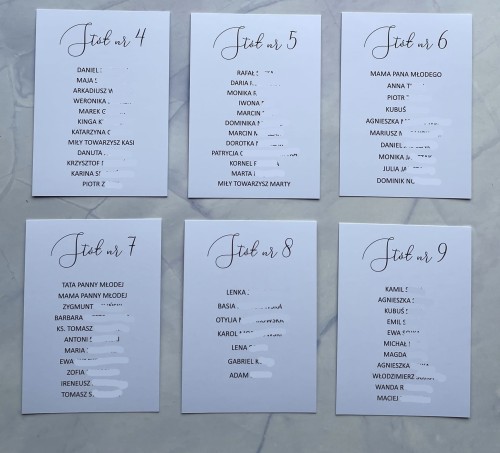 Stół nr 4
DANIEL
MAJA
ARKADIUSZ W
WERONIKA
MAREK
KINGA
KATARZYNA
MIŁY TOWARZYSZ KASI
DANUTA
KRZYSZTOF
KARINA
PIOTR Z
Stół nr 5
RAFAŁ
DARIA
MONIKA
IWONA
MARCIN
DOMINIKA
MARCIN
DOROTKA
PATRYCJA
KORNEL
MARTA
MIŁY TOWARZYSZ MARTY
Stół nr 6
MAMA PANA MŁODEGO
ANNA
PIOTR
KUBUŚ
AGNIESZKA
MARIUSZ
DANIEL
MONIKA
JULIA
DOMINIK
Stół nr 7
TATA PANNY MŁODEJ
MAMA PANNY MŁODEJ
ZYGMUNT
BARBARA
KS. TOMASZ
ANTONI
MARIA
EWA
ZOFIA
IRENEUSZ
TOMASZ S.
Stół nr 8
LENKA
BASIA
OTYLIA
KAROL
LENA
GABRIEL
ADAM
Stół nr 9
KAMIL
AGNIESZKA
KUBUŚ
EMIL
EWA
MICHAŁ
MAGDA
AGNIESZKA
WŁODZIMIERZ
WANDA
MACIEJ